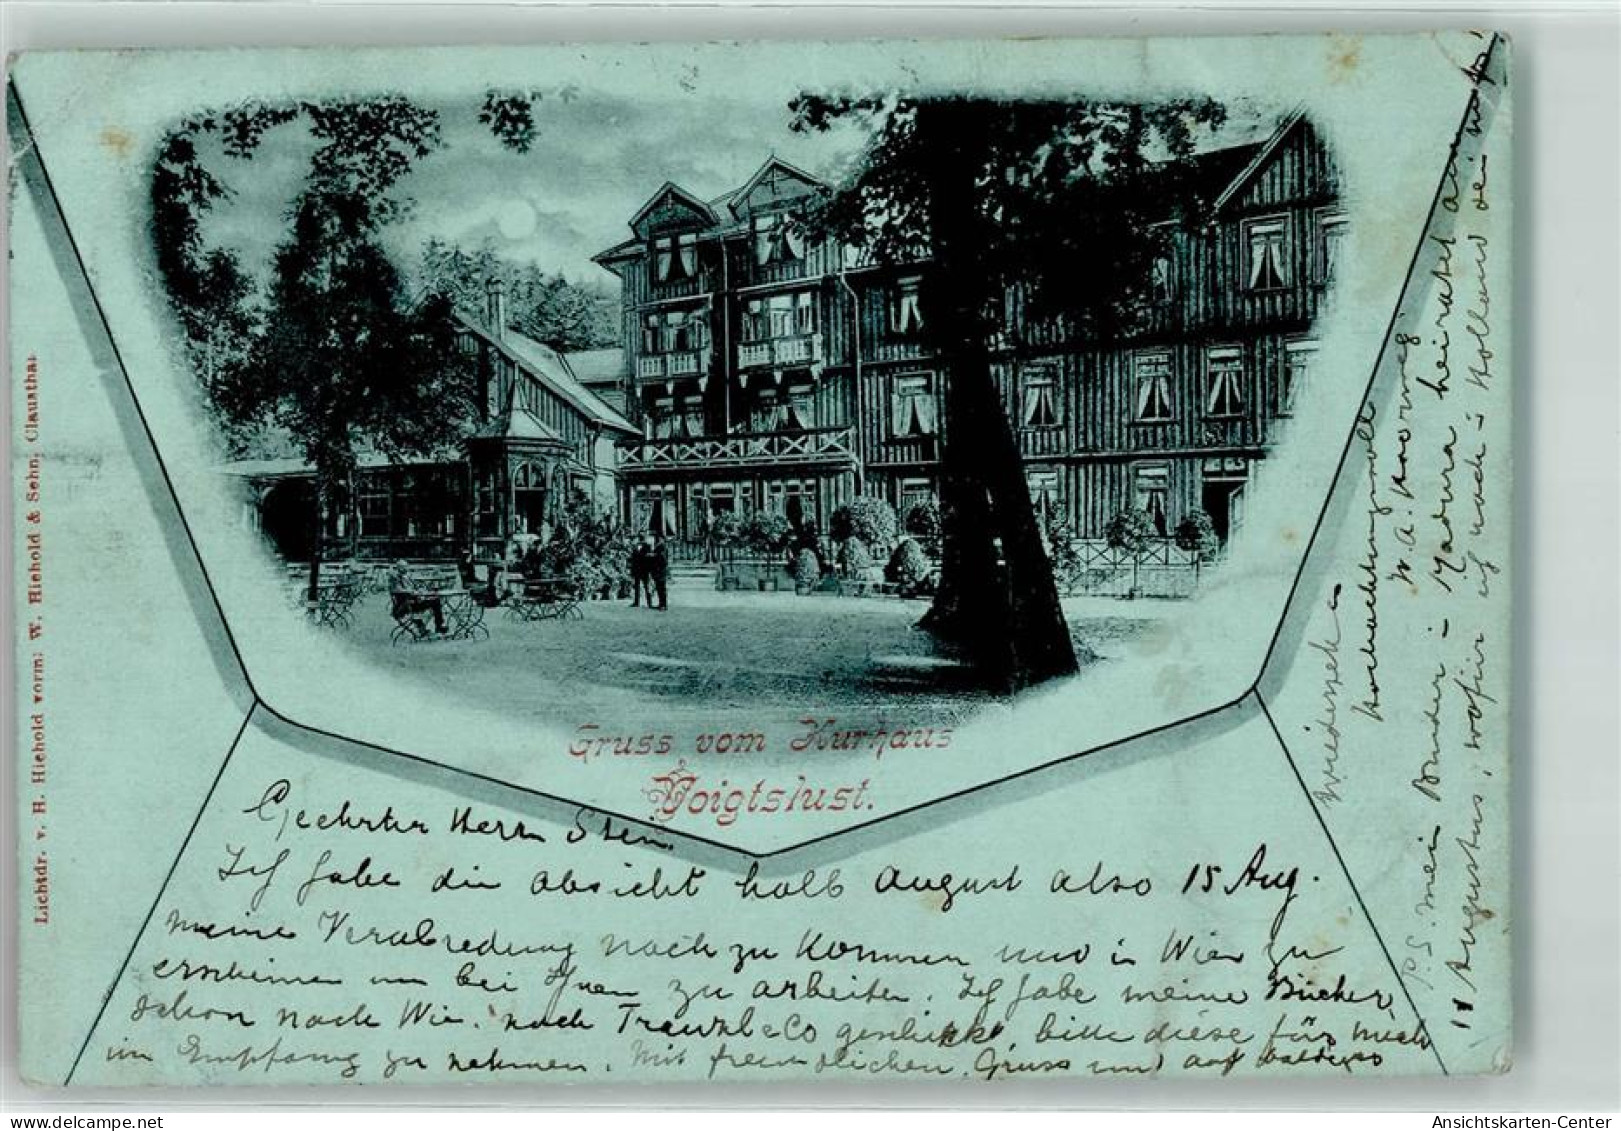 Gruss vom Kurhaus
Voigtslust.
Geehrter Herr Stein.
Ich habe die absicht halb August also 15 Aug.
meine Verabredung nach zu kommen und in Wien zu
erscheinen um bei Ihnen zu arbeiten. Ich habe meine Bücher
schon nach Wien nach &Co geschickt, bitte diese für mich
im Empfang zu nehmen. Mit freundlichen Gruss und auf baldiges
wiedersehen
hochachtungsvoll
W. A.
P.S. mein Bruder heiratet am
11 Augustus, wofür ich nach Holland
Lichtdr. v. H. Hiehold vorm: W. Hiehold & Sohn, Clausthal
Ansichtskarten-Center